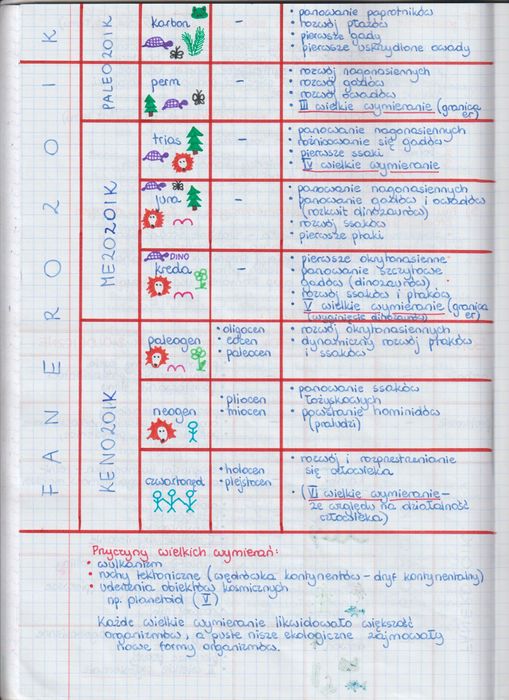 FANEROZOIK
PALEOZOIK
karbon
-
• panowanie paprotników
• rozwój płazów
• pierwsze gady
• pierwsze uskrzydlone owady
perm
-
• rozwój nagonasiennych
• rozwój gadów
• rozwój owadów
• III wielkie wymieranie (granica
er)
MEZOZOIK
trias
-
• panowanie nagonasiennych
• różnicowanie się gadów
• pierwsze ssaki
• IV wielkie wymieranie
jura
-
• panowanie nagonasiennych
• panowanie gadów i owadów
(rozkwit dinozaurów)
• rozwój ssaków
• pierwsze ptaki
DINO
kreda
-
• pierwsze okrytonasienne
• panowanie szczytowe
gadów (dinozaurów)
• rozwój ssaków i ptaków
• V wielkie wymieranie (granica
(wyginięcie dinozaurów) er)
KENOZOIK
paleogen
• oligocen
• eocen
• paleocen
• rozwój okrytonasiennych
• dynamiczny rozwój ptaków
i ssaków
neogen
• pliocen
• miocen
• panowanie ssaków
łożyskowych
• powstanie hominidów
(praludzi)
czwartorzęd
• holocen
• plejstocen
• rozwój i rozprzestrzenianie
się człowieka
• (VI wielkie wymieranie -
ze względu na działalność
człowieka)
Przyczyny wielkich wymierań:
• wulkanizm
• ruchy tektoniczne (wędrówka kontynentów - dryf kontynentalny)
• uderzenia obiektów kosmicznych
np. planetoid (V)
Każde wielkie wymieranie likwidowało większość
organizmów, a puste nisze ekologiczne zajmowały
nowe formy organizmów.